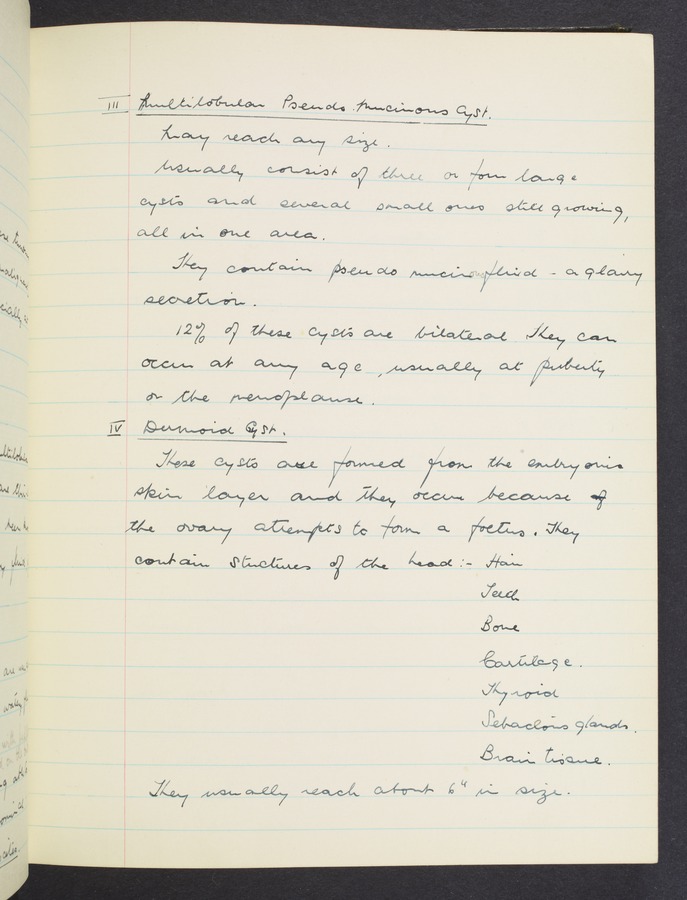 III Multilobular Pseudo Mucinous Cyst.
May reach any size.
Usually consist of three or four large
cysts and several small ones still growing,
all in one area.
They contain pseudo mucinous fluid - a glairy
secretion.
12% of these cysts are bilateral They can
occur at any age, usually at puberty
or the menopause.
IV Dermoid Cyst.
These cysts are formed from the embryonic
skin layer and they occur because of
the ovary attempts to form a foetus. They
contain structures of the head :- Hair
Teeth
Bone
Cartilage.
Thyroid
Sebaceous glands.
Brain tissue.
They usually reach about 6" in size.